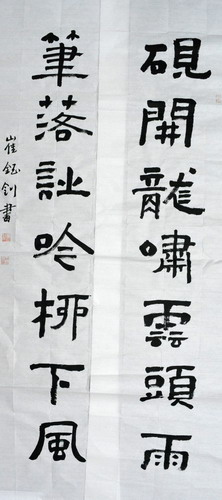 硯開龍嘯雲頭雨
筆落訨吟柳下風
崔鈺釗書